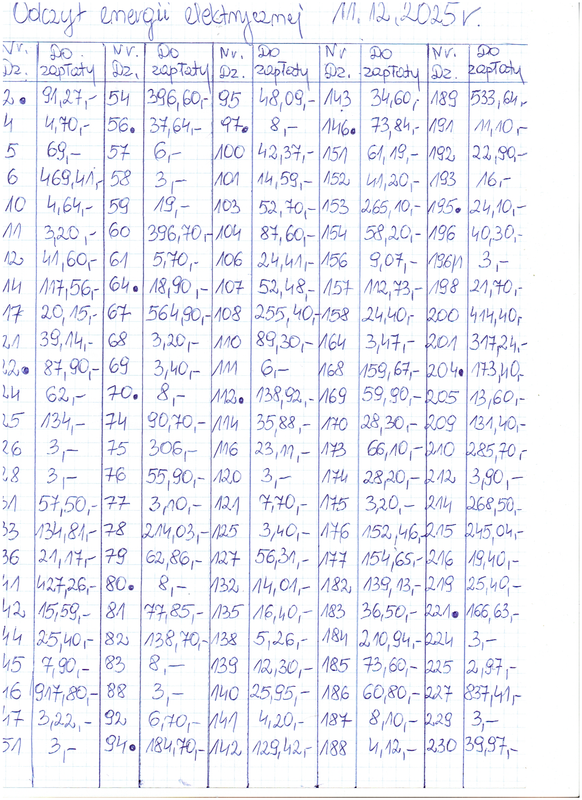 Odczyt energii elektrycznej 11.12.2025r.
Nr. Do Nr. Do Nr. Do Nr. Do Nr. Do
Dz. zapłaty Dz. zapłaty Dz. zapłaty Dz. zapłaty Dz. zapłaty
2. 91,27,- 54 396,60,- 95 48,09,- 143 34,60,- 189 533,64,-
4 4,70,- 56. 37,64,- 97. 8,- 146. 73,84,- 191 11,10,-
5 69,- 57 6,- 100 42,37,- 151 61,19,- 192 22,90,-
6 469,41,- 58 3,- 101 14,59,- 152 41,20,- 193 16,-
10 4,64,- 59 19,- 103 52,70,- 153 265,10,- 195. 24,10,-
11 3,20,- 60 396,70,- 104 87,60,- 154 58,20,- 196 40,30,-
12 41,60,- 61 5,70,- 106 24,41,- 156 9,07,- 196/1 3,-
14 117,56,- 64. 18,90,- 107 52,48,- 157 112,73,- 198 21,70,-
17 20,15,- 67 564,90,- 108 255,40,- 158 24,40,- 200 414,40,-
21 39,14,- 68 3,20,- 110 89,30,- 164 3,47,- 201 317,24,-
22. 87,90,- 69 3,40,- 111 6,- 168 159,67,- 204. 173,40,-
24 62,- 70. 8,- 112. 138,92,- 169 59,90,- 205 13,60,-
25 134,- 74 90,70,- 114 35,88,- 170 28,30,- 209 131,40,-
26 3,- 75 306,- 116 23,11,- 173 66,10,- 210 285,70,-
28 3,- 76 55,90,- 120 3,- 174 28,20,- 212 3,90,-
31 57,50,- 77 3,10,- 121 7,70,- 175 3,20,- 214 268,50,-
33 134,81,- 78 214,03,- 125 3,40,- 176 152,46,- 215 245,04,-
36 21,17,- 79 62,86,- 127 56,31,- 177 154,65,- 216 19,40,-
41 427,26,- 80. 8,- 132 14,01,- 182 139,13,- 219 25,40,-
42 15,59,- 81 77,85,- 135 16,40,- 183 36,50,- 221. 166,63,-
44 25,40,- 82 138,70,- 138 5,26,- 184 210,94,- 224 3,-
45 7,90,- 83 8,- 139 12,30,- 185 73,60,- 225 2,97,-
46 917,80,- 88 3,- 140 25,95,- 186 60,80,- 227 837,41,-
47 3,22,- 92 6,70,- 141 4,20,- 187 8,10,- 229 3,-
51 3,- 94. 184,70,- 142 129,42,- 188 4,12,- 230 39,97,-